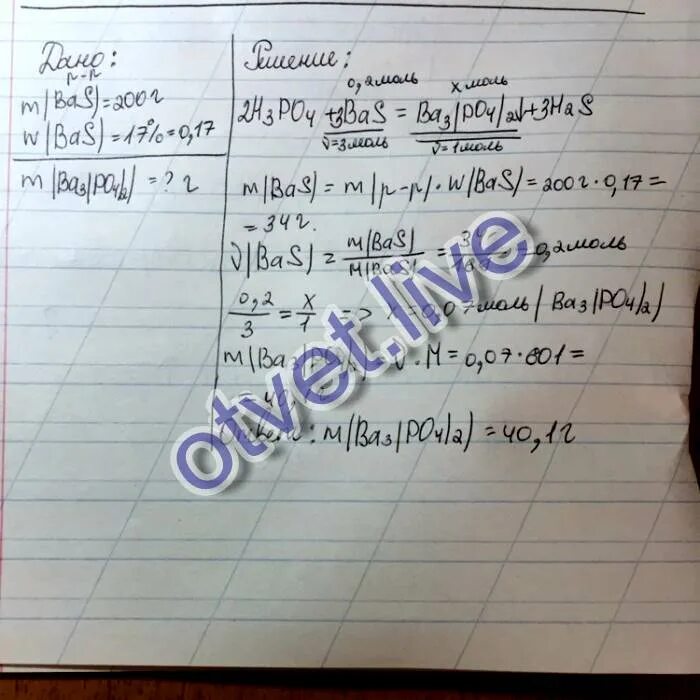 Дано:
р-р
m(BaS)=200г
w(BaS)=17%=0,17
m(Ba3(PO4)2)=? г
Решение:
0,2моль х моль
2H3PO4+3BaS=Ba3(PO4)2↓+3H2S
ν=3моль ν=1моль
m(BaS)=m(р-р)·w(BaS)=200г·0,17=
=34г.
ν(BaS)=m(BaS)/M(BaS)= 0,2моль
0,2/3=x/1=> х=0,07моль(Ba3(PO4)2)
m(Ba3(PO4)2)=ν·M=0,07·601=
Ответ: m(Ba3(PO4)2)=40,1г
otvet.live